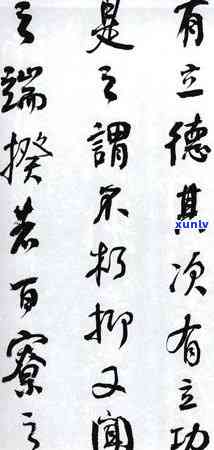 有立德其次有立功
是之謂不朽抑又聞
之端揆者百寮之
xunlv